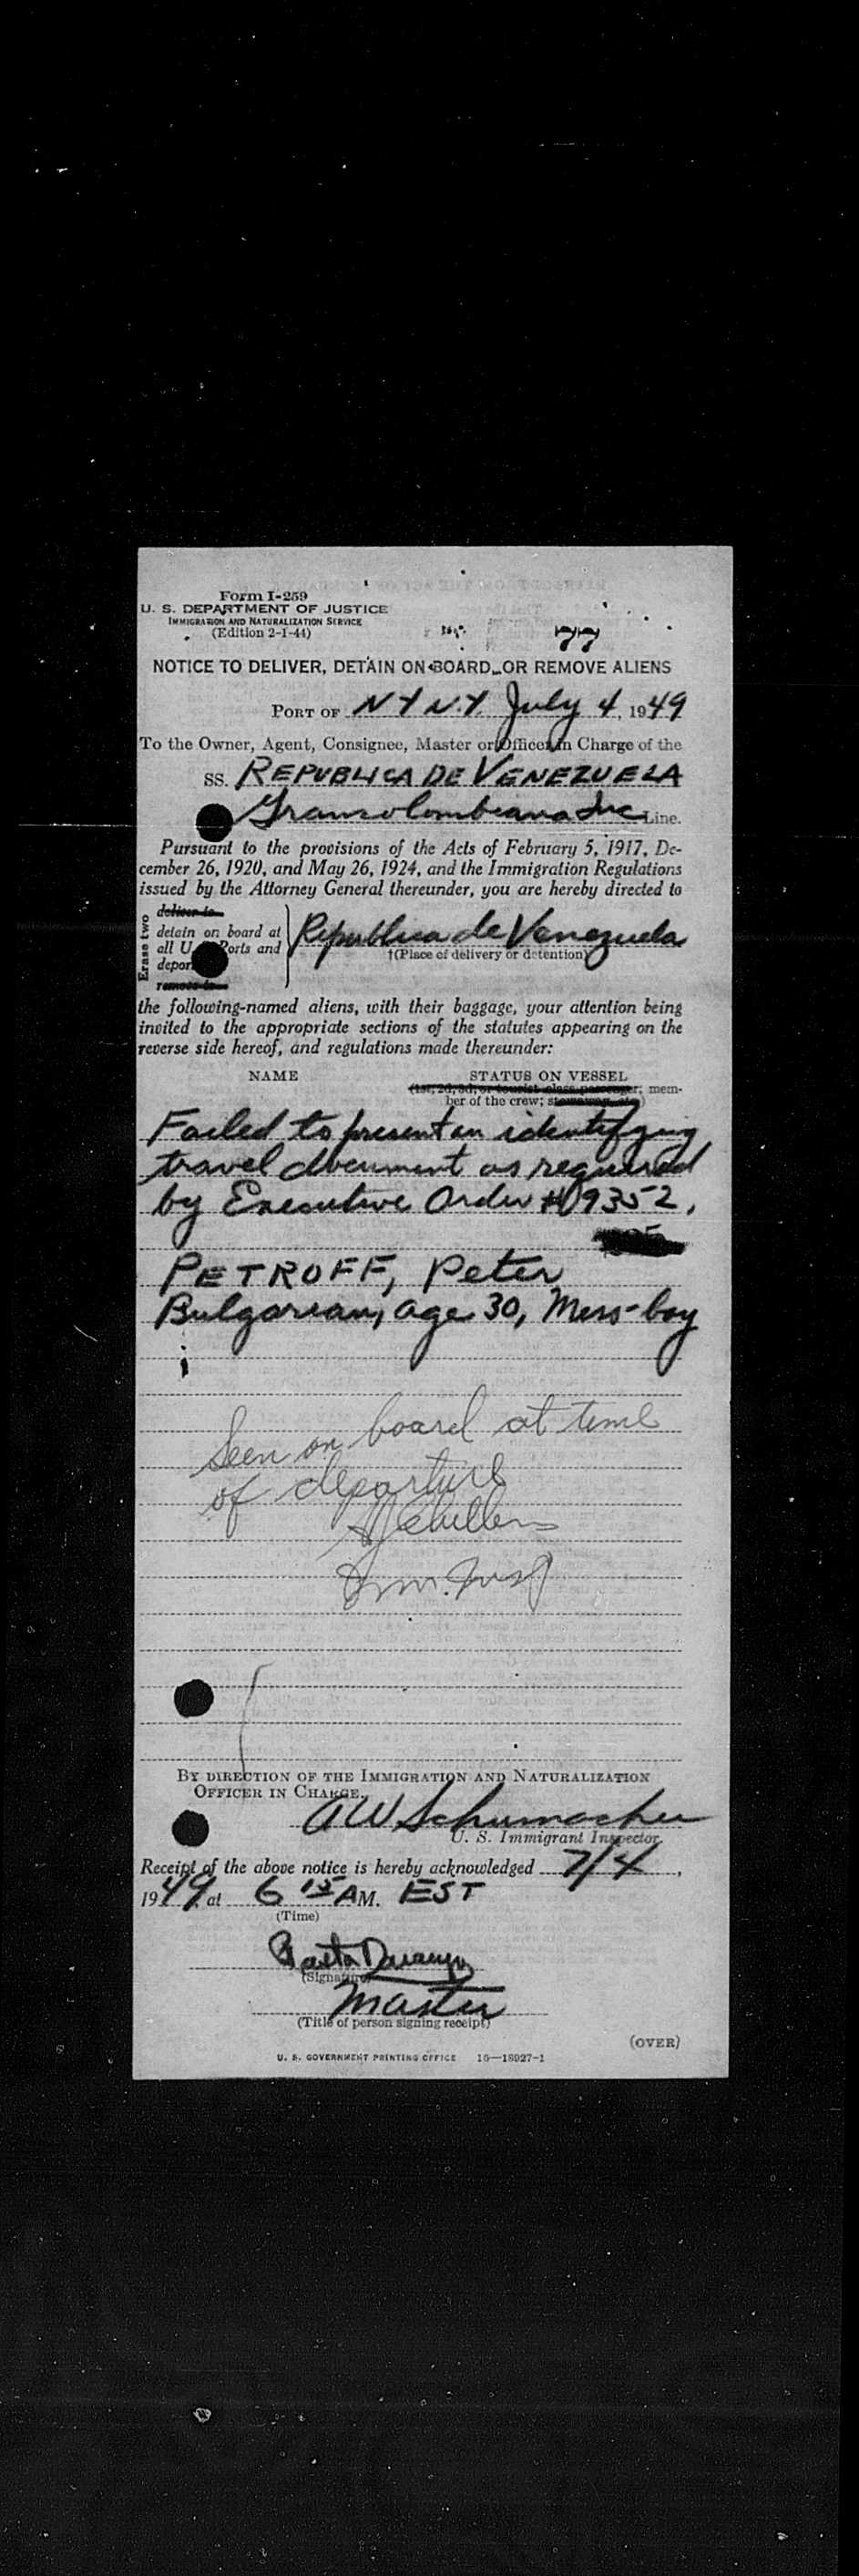 Form I-259
U. S. DEPARTMENT OF JUSTICE
IMMIGRATION AND NATURALIZATION SERVICE
(Edition 2-1-44)
77
NOTICE TO DELIVER, DETAIN ON BOARD, OR REMOVE ALIENS
PORT OF N Y N.Y. July 4, 1949
To the Owner, Agent, Consignee, Master or Officer in Charge of the
SS. REPUBLICA DE VENEZUELA
Grancolombiana Inc. Line.
Pursuant to the provisions of the Acts of February 5, 1917, De-
cember 26, 1920, and May 26, 1924, and the Immigration Regulations
issued by the Attorney General thereunder, you are hereby directed to
Erase two
deliver to
detain on board at
all U. Ports and
depor
remove to
Republica de Venezuela
†(Place of delivery or detention)
the following-named aliens, with their baggage, your attention being
invited to the appropriate sections of the statutes appearing on the
reverse side hereof, and regulations made thereunder:
NAME STATUS ON VESSEL
(1st, 2d, 3d, or tourist class passenger; mem-
ber of the crew; stowaway, etc.)
Failed to present an identifying
travel document as required
by Executive Order #9352.
PETROFF, Peter
Bulgarian, age 30, Mess-boy
Seen on board at time
of departure
Imm. Insp
BY DIRECTION OF THE IMMIGRATION AND NATURALIZATION
OFFICER IN CHARGE.
A W Schumacher
U. S. Immigrant Inspector.
Receipt of the above notice is hereby acknowledged 7/4,
1949, at 6 15 AM. EST
(Time)
(Signature)
Master
(Title of person signing receipt)
(OVER)
U. S. GOVERNMENT PRINTING OFFICE 16—18927-1